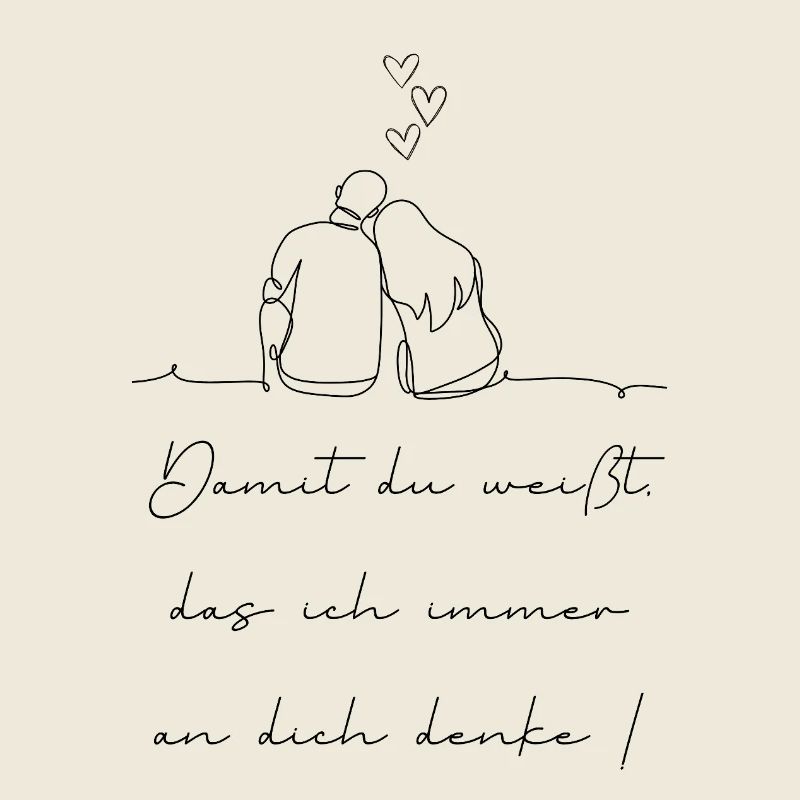 Damit du weißt,
das ich immer
an dich denke !